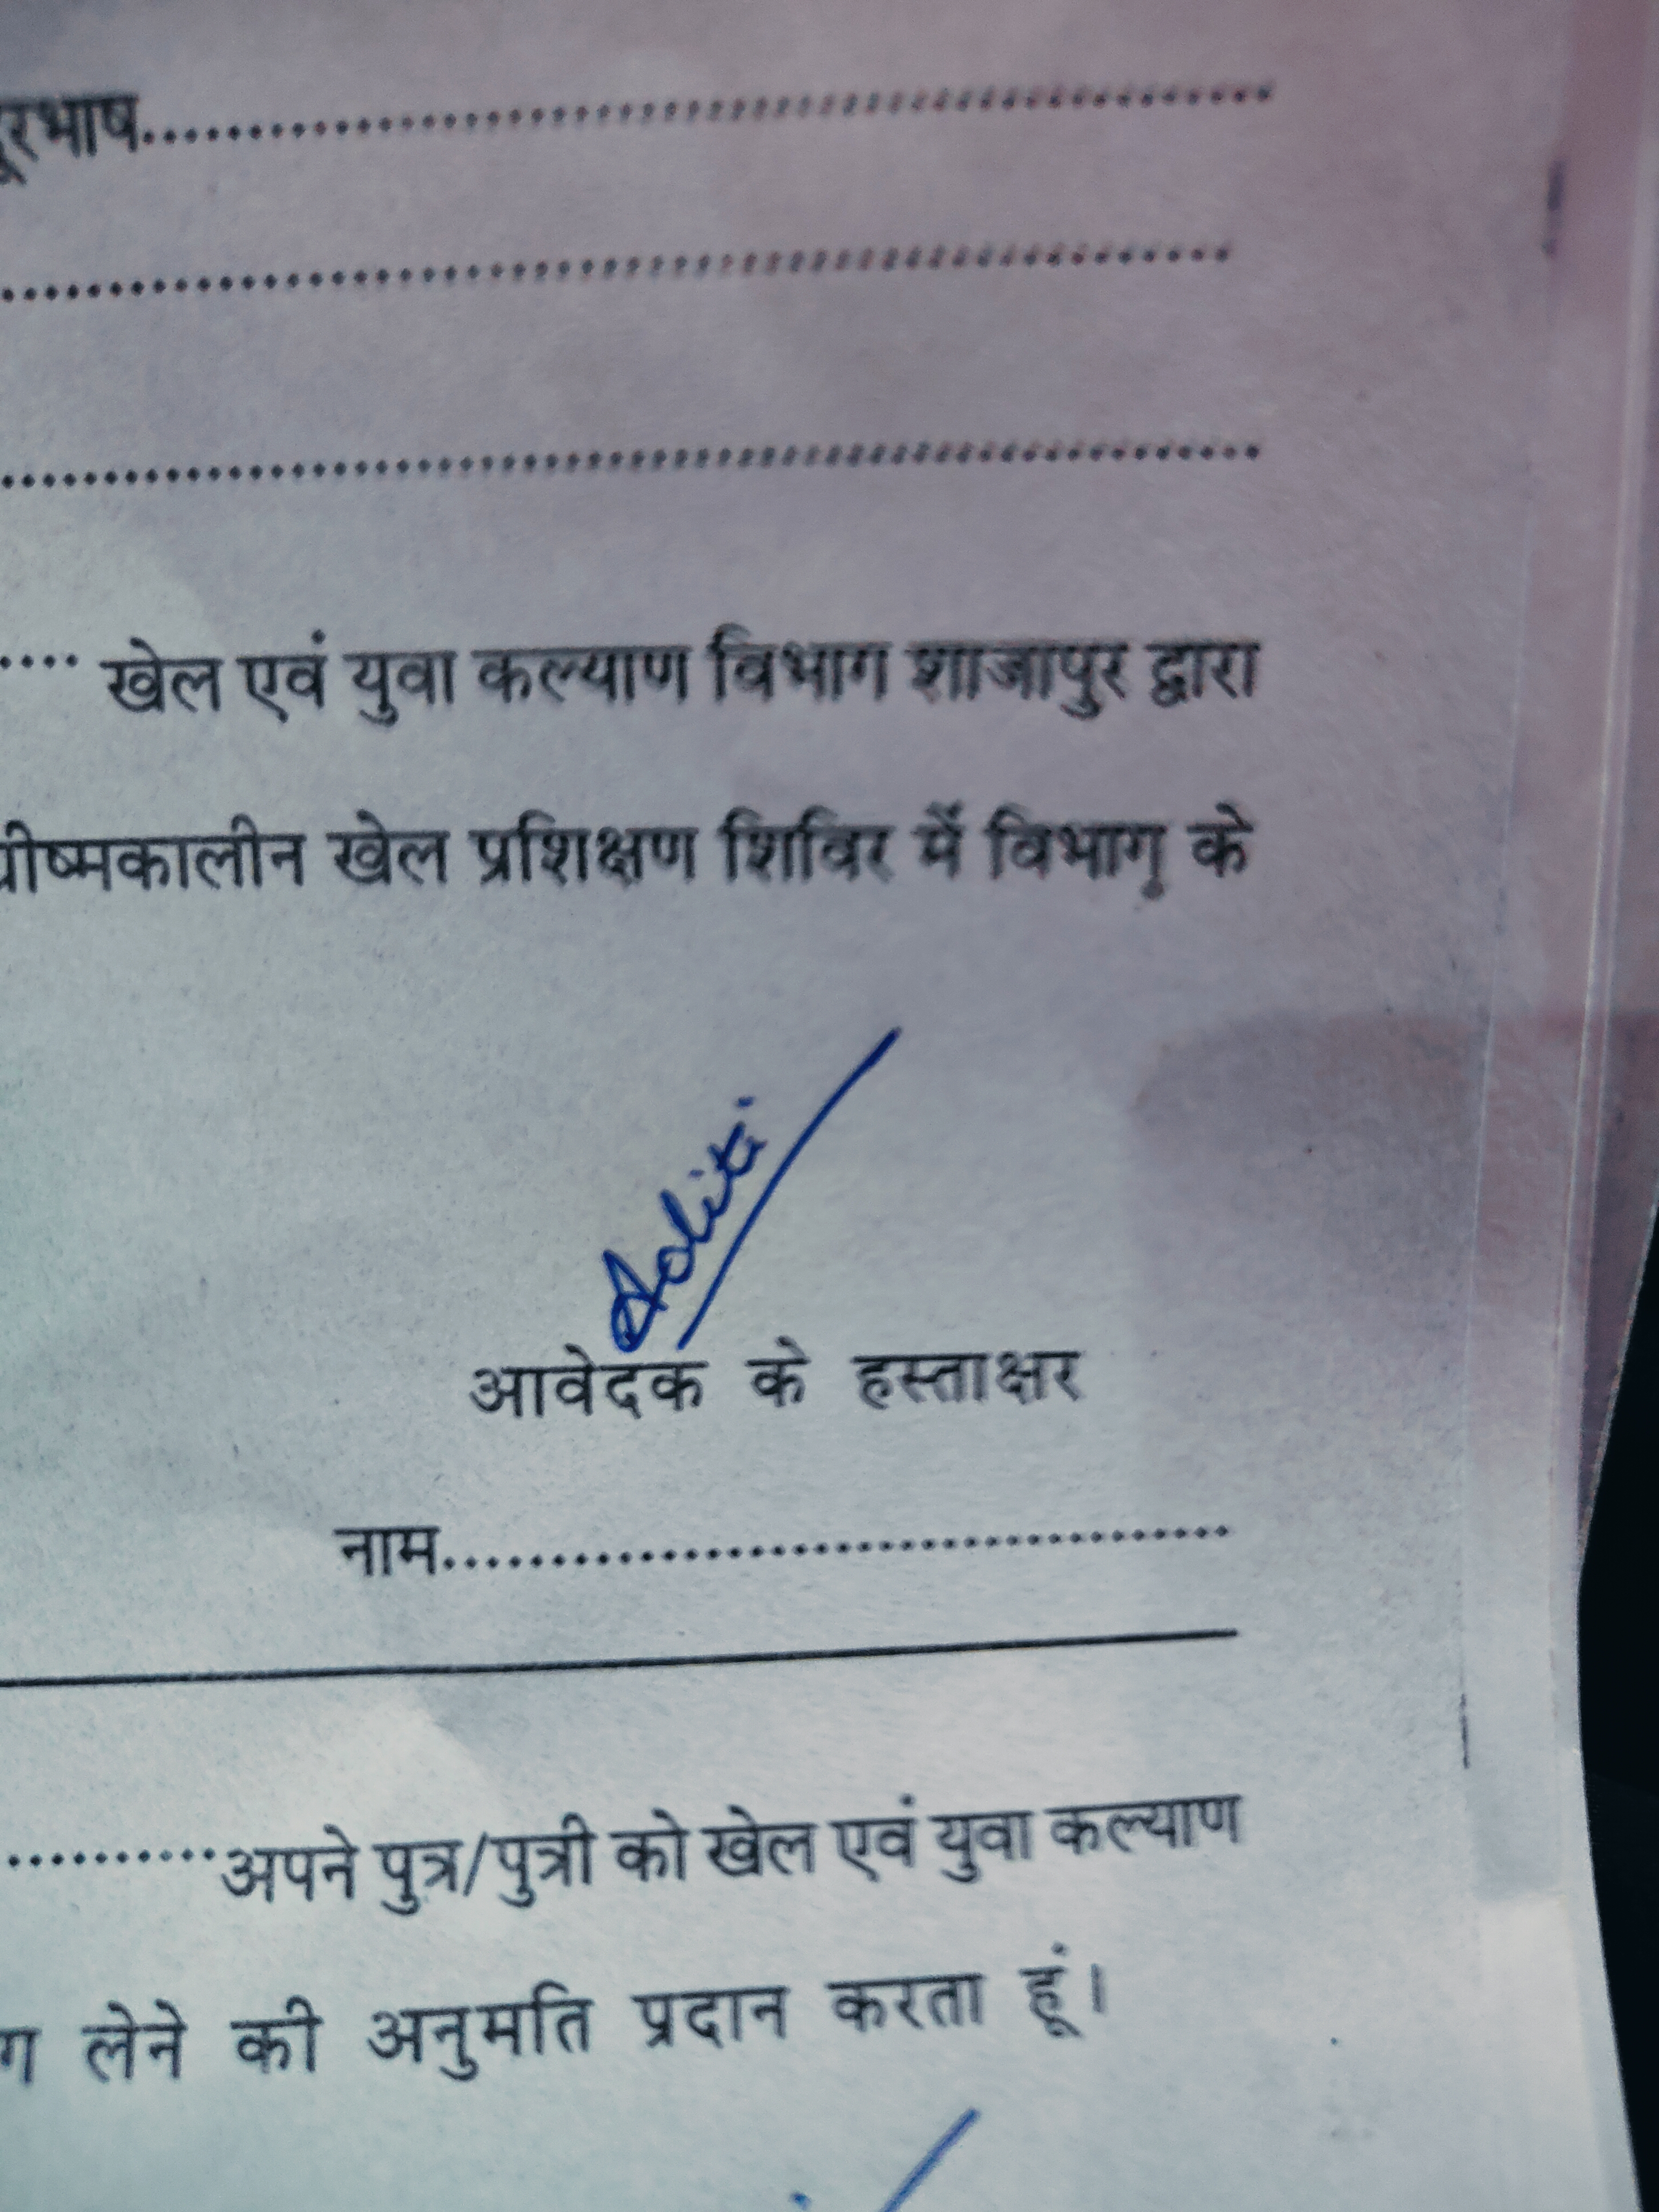 दूरभाष..........................................................
..........................................................
..........................................................
.... खेल एवं युवा कल्याण विभाग शाजापुर द्वारा
ग्रीष्मकालीन खेल प्रशिक्षण शिविर में विभाग के
Aditi
आवेदक के हस्ताक्षर
नाम........................................
..........अपने पुत्र/पुत्री को खेल एवं युवा कल्याण
ग लेने की अनुमति प्रदान करता हूं।